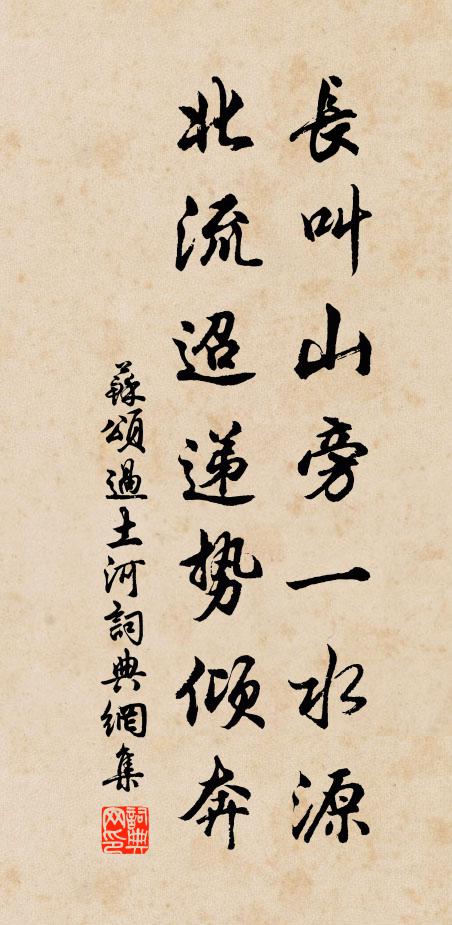 長叫山旁一水源
北流迢递势倾奔
蘇頌過土河詞典網集
詞典网印